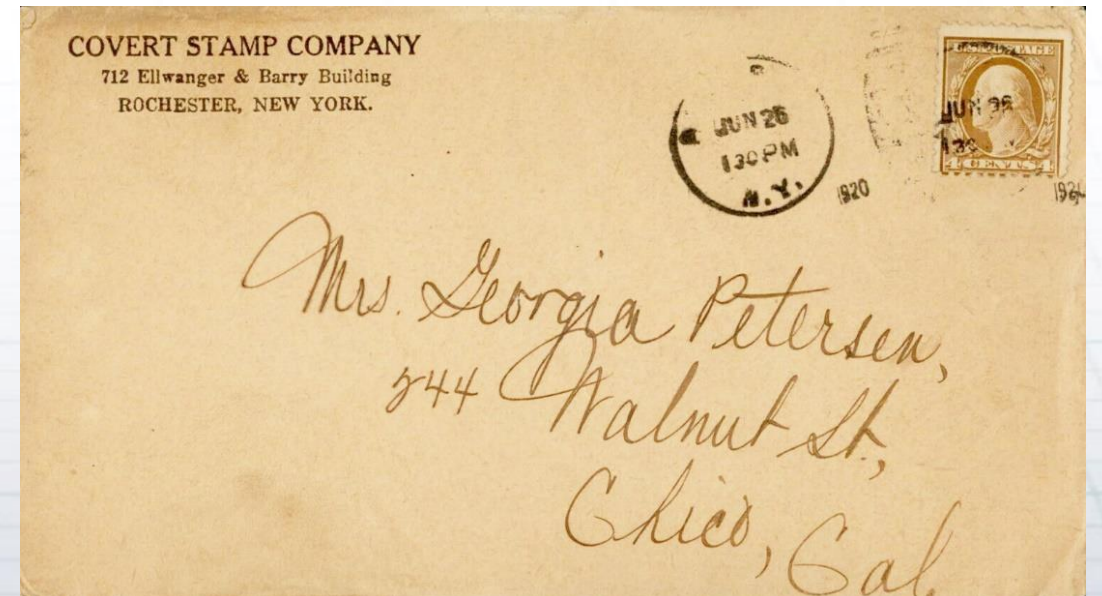 COVERT STAMP COMPANY
712 Ellwanger & Barry Building
ROCHESTER, NEW YORK.
JUN 26
130 PM
N.Y.
1920
U.S. POSTAGE
JUN 26
130
4 CENTS 4
Mrs. Georgia Petersen,
544 Walnut St.,
Chico, Cal